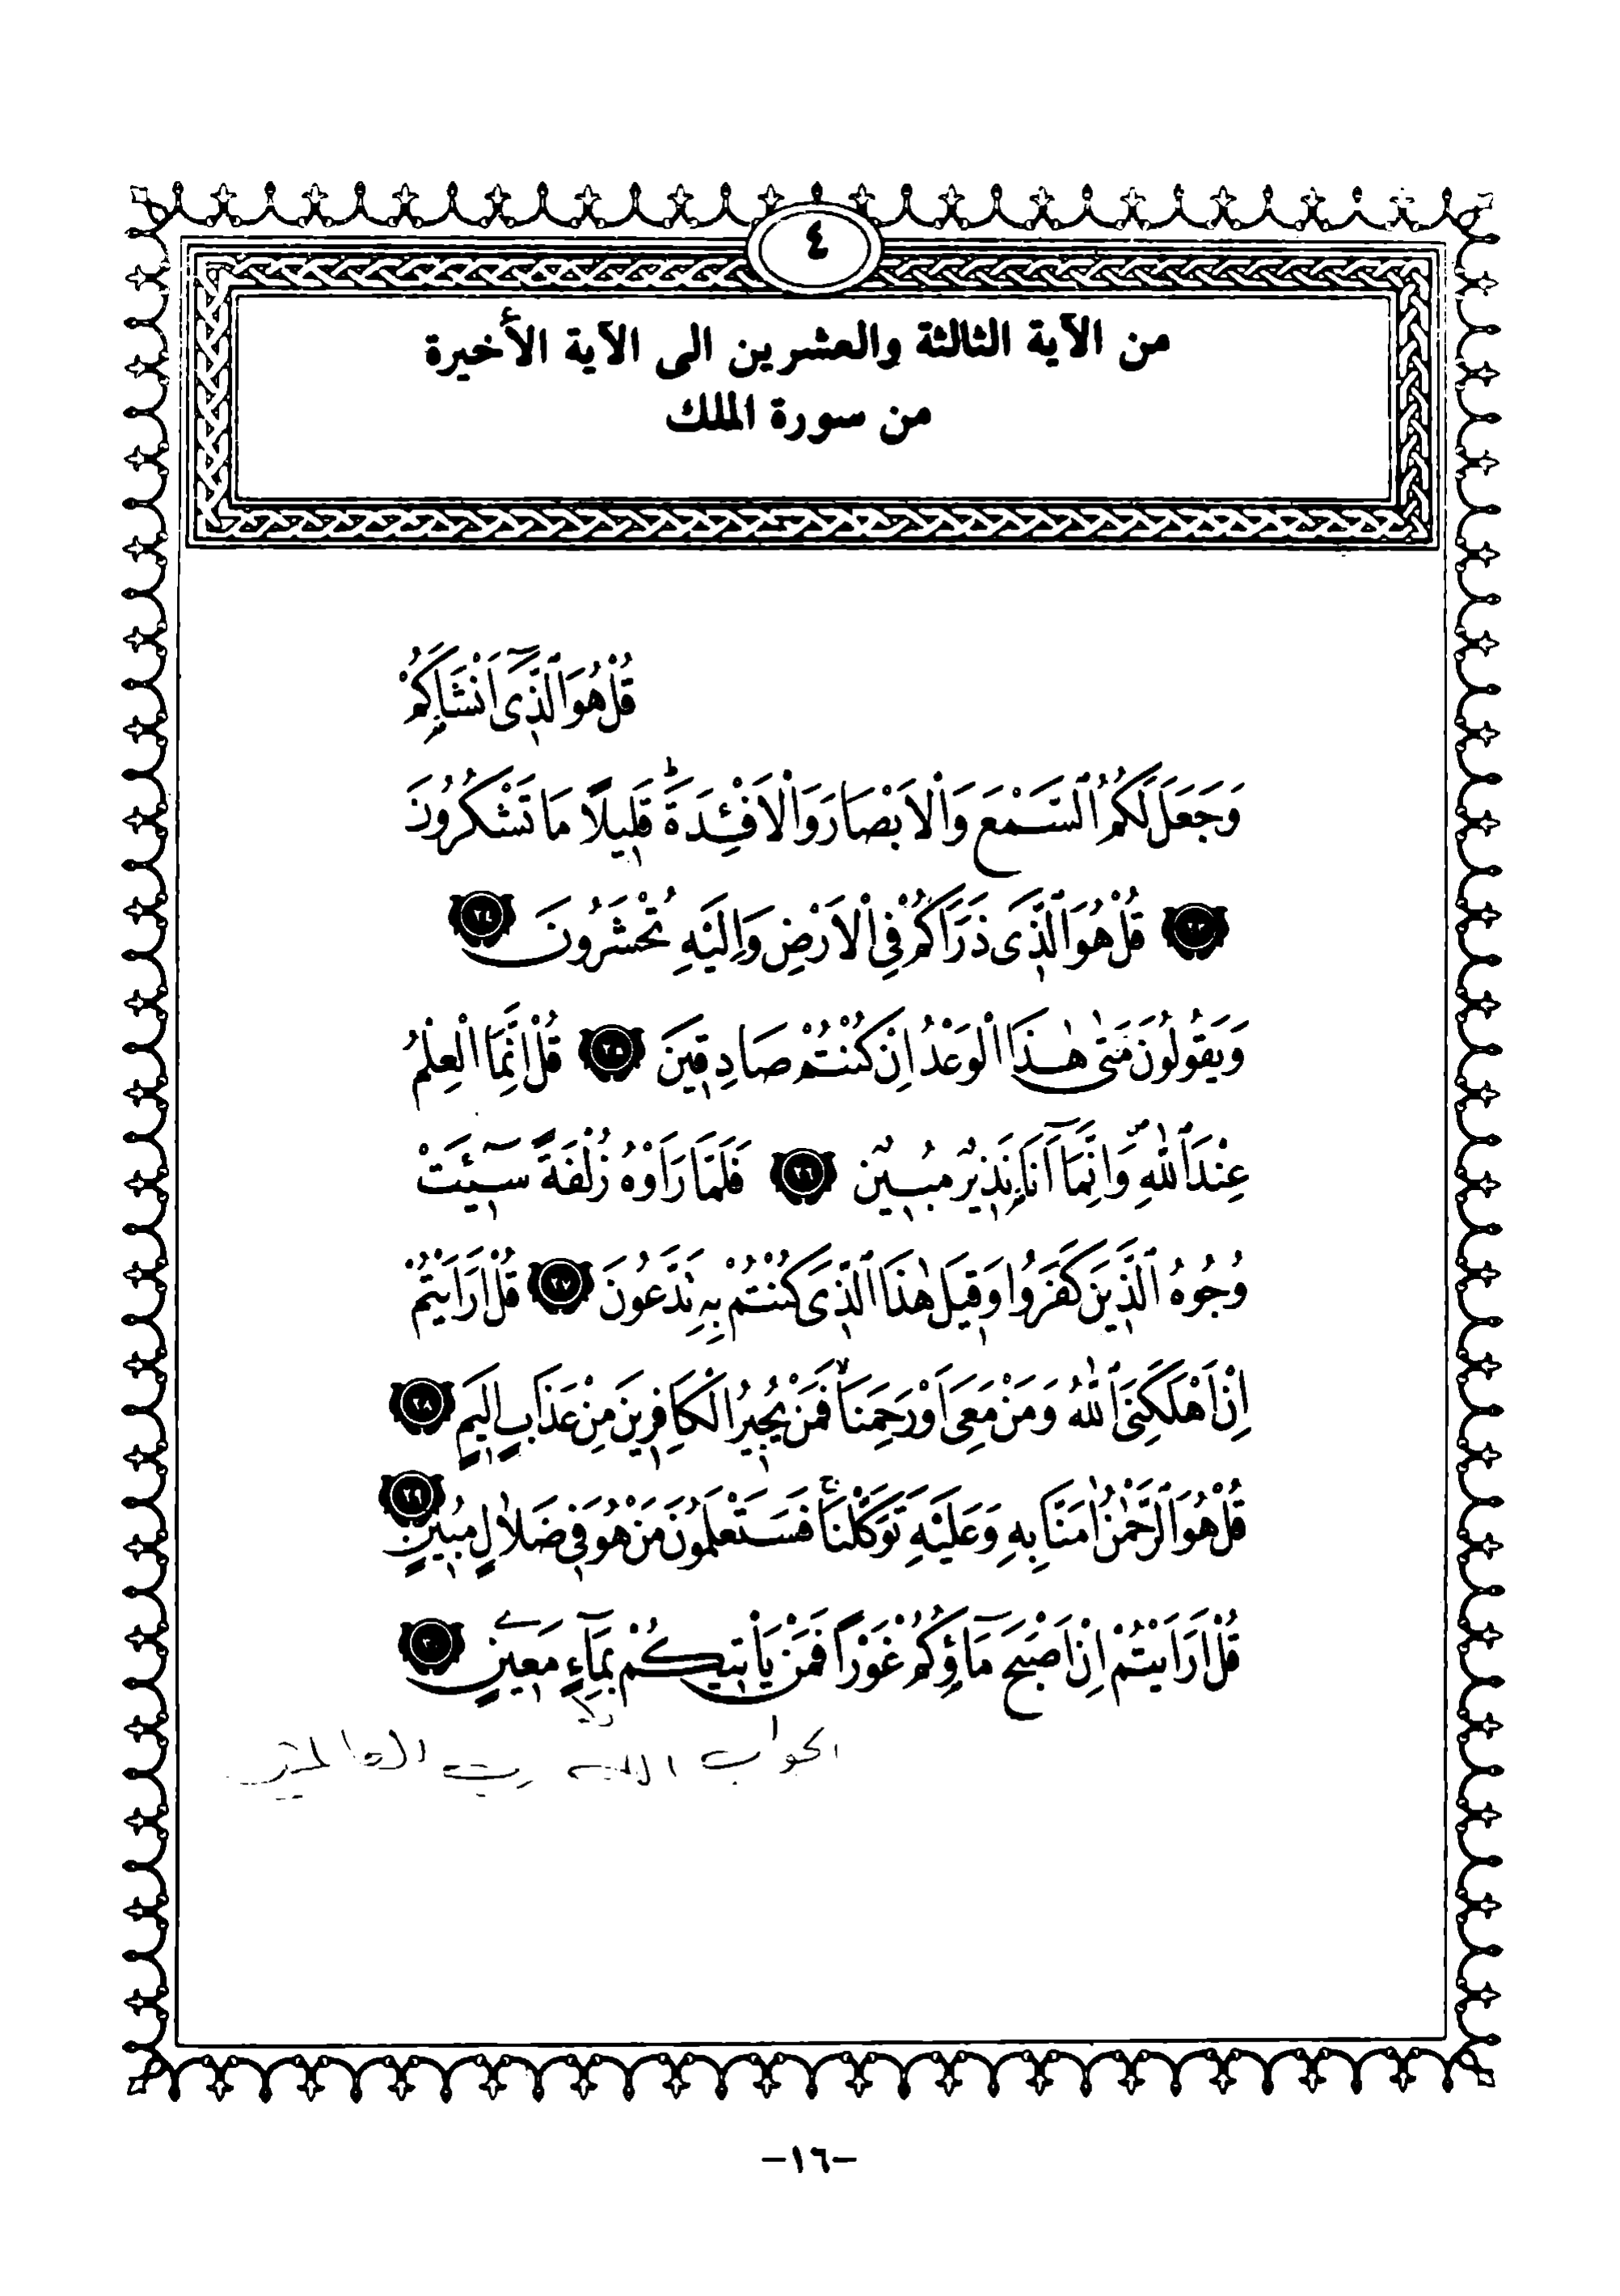 ٤
من الآية الثالثة والعشرين الى الآية الأخيرة
من سورة الملك
قُلْ هُوَ ٱلَّذٖٓى اَنْشَاَكُمْ
وَجَعَلَ لَكُمُ ٱلسَّمْعَ وَالْاَبْصَارَ وَالْاَفْـِٔدَةَؕ قَلٖيلًا مَا تَشْكُرُونَ
﴿٢٣﴾ قُلْ هُوَ ٱلَّذٖى ذَرَاَكُمْ فِى الْاَرْضِ وَاِلَيْهِ تُحْشَرُونَ ﴿٢٤﴾
وَيَقُولُونَ مَتٰى هٰذَا الْوَعْدُ اِنْ كُنْتُمْ صَادِقٖينَ ﴿٢٥﴾ قُلْ اِنَّمَا الْعِلْمُ
عِنْدَ ٱللّٰهِ وَاِنَّمَٓا اَنَا۬ نَذٖيرٌ مُبٖينٌ ﴿٢٦﴾ فَلَمَّا رَاَوْهُ زُلْفَةً سٖٓيئَتْ
وُجُوهُ ٱلَّذٖينَ كَفَرُوا وَقٖيلَ هٰذَا ٱلَّذٖى كُنْتُمْ بِهٖ تَدَّعُونَ ﴿٢٧﴾ قُلْ اَرَاَيْتُمْ
اِنْ اَهْلَكَنِىَ ٱللّٰهُ وَمَنْ مَعِىَ اَوْ رَحِمَنَاۙ فَمَنْ يُجٖيرُ الْكَافِرٖينَ مِنْ عَذَابٍ اَلٖيمٍ ﴿٢٨﴾
قُلْ هُوَ ٱلرَّحْمٰنُ اٰمَنَّا بِهٖ وَعَلَيْهِ تَوَكَّلْنَاۚ فَسَتَعْلَمُونَ مَنْ هُوَ فٖى ضَلَالٍ مُبٖينٍ ﴿٢٩﴾
قُلْ اَرَاَيْتُمْ اِنْ اَصْبَحَ مَٓاؤُ۬كُمْ غَوْرًا فَمَنْ يَاْتٖيكُمْ بِمَٓاءٍ مَعٖينٍ ﴿٣٠﴾
الجواب الله رب العالمين
-١٦-